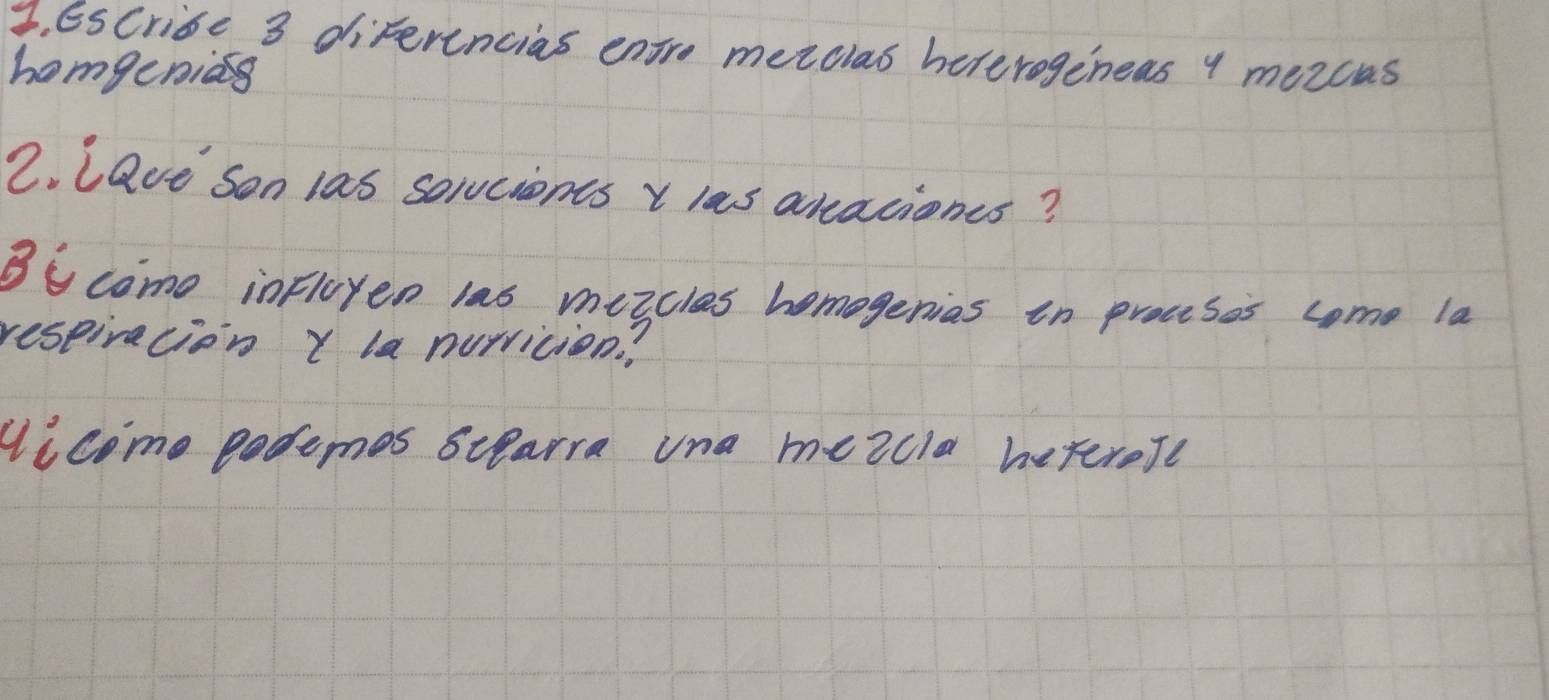 1. Escribe 3 diferencias entre mezclas heterogéneas y mezcas
homgenias
2. ¿Qué son las soluciones y las aleaciones?
3 ¿cómo influyen las mezclas homogenias en procesos como la
respiración y la nutricion?
4 ¿cómo podemos separra una mezcla